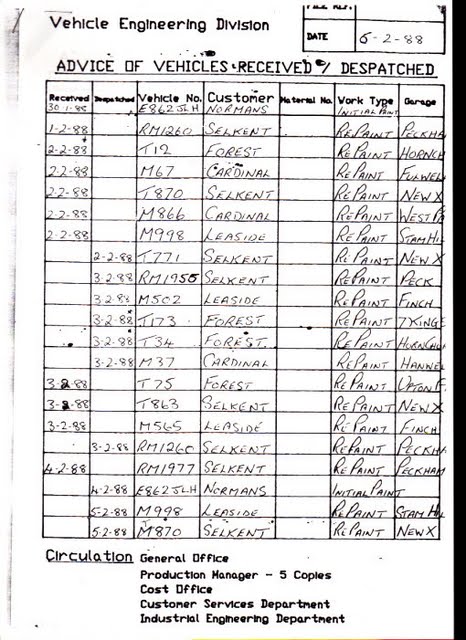 FILE REF.
Vehicle Engineering Division
DATE 5-2-88
ADVICE OF VEHICLES RECEIVED / DESPATCHED
Received Despatched Vehicle No. Customer Material No. Work Type Garage
30-1-88 E862JLH NORMANS INITIAL PAINT
1-2-88 RM1260 SELKENT REPAINT PECKHA
2-2-88 T12 FOREST REPAINT HORNCH
2-2-88 M67 CARDINAL REPAINT FULWEL
2-2-88 T870 SELKENT REPAINT NEW X
2-2-88 M866 CARDINAL REPAINT WEST PA
2-2-88 M998 LEASIDE REPAINT STAM HI
2-2-88 T771 SELKENT REPAINT NEW X
3-2-88 RM1955 SELKENT REPAINT PECK
3-2-88 M502 LEASIDE REPAINT FINCH
3-2-88 T173 FOREST REPAINT 7 KINGS
3-2-88 T34 FOREST REPAINT HORNCHU
3-2-88 M37 CARDINAL REPAINT HANWEL
3-2-88 T75 FOREST REPAINT UPTON F.
3-2-88 T863 SELKENT REPAINT NEW X
3-2-88 M565 LEASIDE REPAINT FINCH
3-2-88 RM1260 SELKENT REPAINT PECKHA
4-2-88 RM1977 SELKENT REPAINT PECKHAM
4-2-88 E862JLH NORMANS INITIAL PAINT
5-2-88 M998 LEASIDE REPAINT STAM HIL
5-2-88 M870 SELKENT REPAINT NEW X
Circulation General Office
Production Manager - 5 Copies
Cost Office
Customer Services Department
Industrial Engineering Department